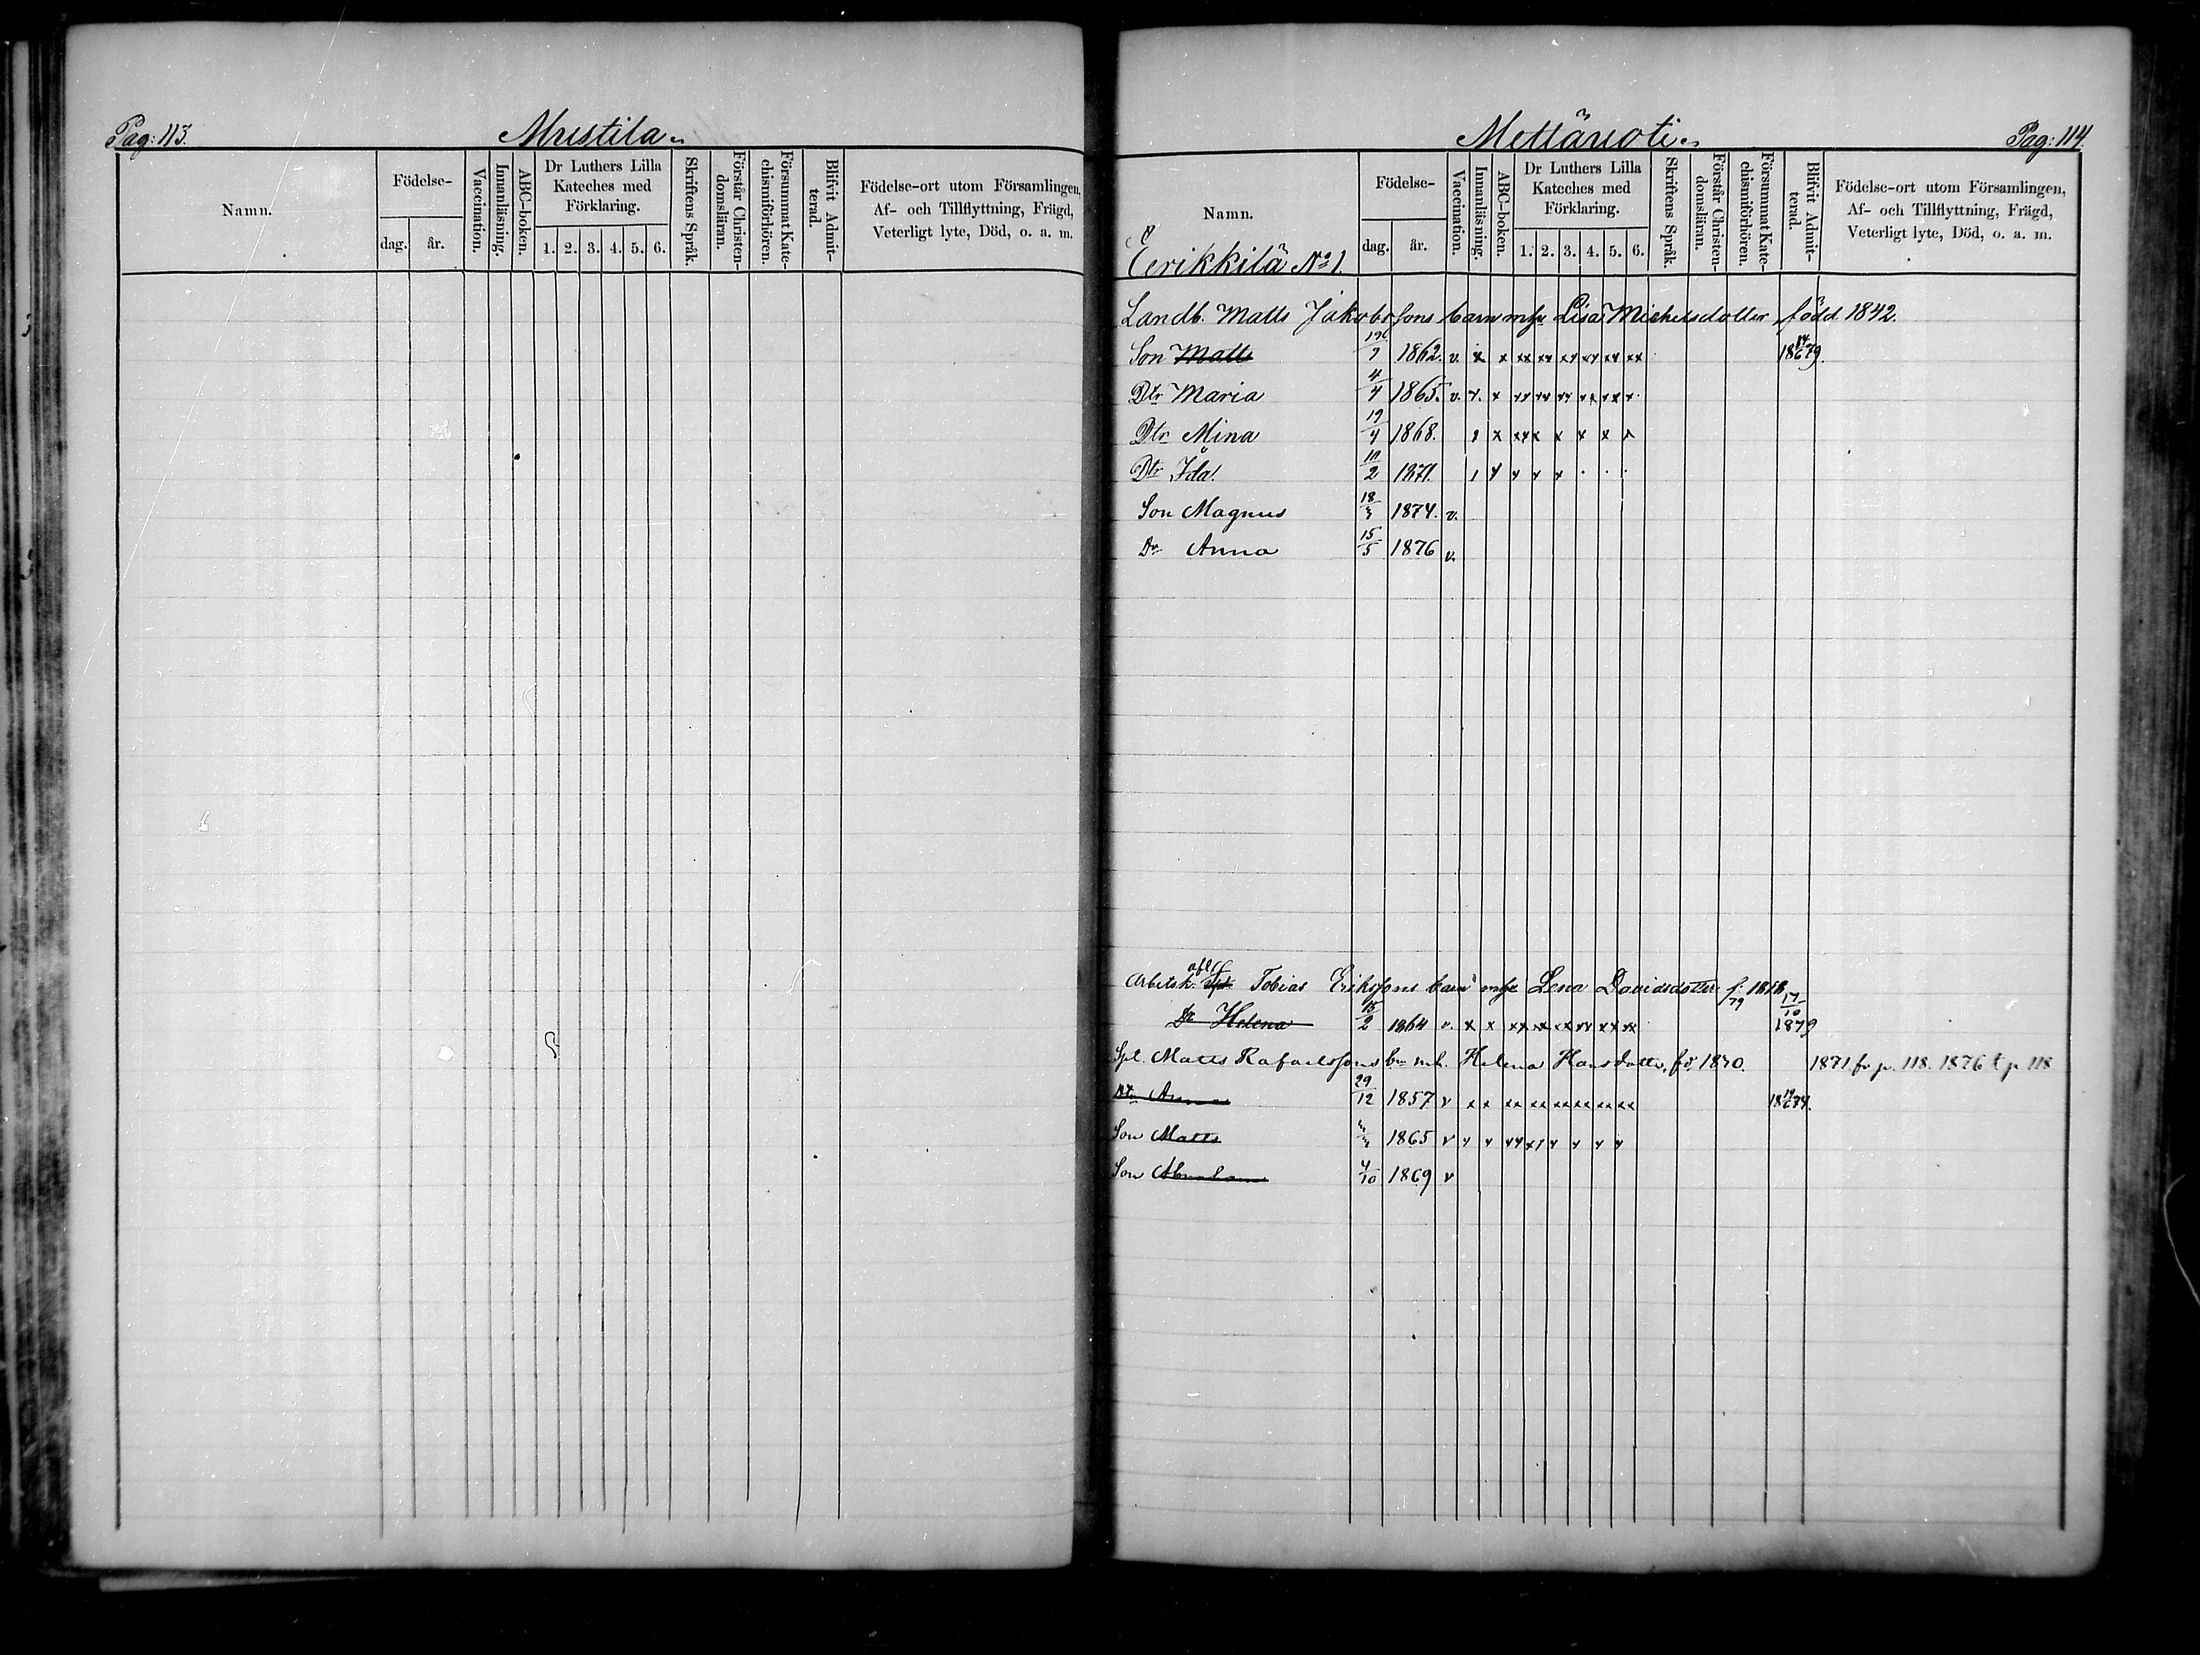 Pag: 113.
Mustila
Namn.
Födelse-
dag.
år.
Vaccination.
Innanläsning.
ABC-boken.
Dr Luthers Lilla Kateches med Förklaring.
1. 2. 3. 4. 5. 6.
Skriftens Språk.
Förstår Christen-domsläran.
Försummat Kate-chismiförhören.
Blifvit Admit-terad.
Födelse-ort utom Församlingen,
Af- och Tillflyttning, Frägd,
Veterligt lyte, Död, o. a. m.
Mettäuoti
Pag: 114.
Namn.
Eerikkilä No 1.
Födelse-
dag.
år.
Vaccination.
Innanläsning.
ABC-boken.
Dr Luthers Lilla Kateches med Förklaring.
1. 2. 3. 4. 5. 6.
Skriftens Språk.
Förstår Christen-domsläran.
Försummat Kate-chismiförhören.
Blifvit Admit-terad.
Födelse-ort utom Församlingen,
Af- och Tillflyttning, Frägd,
Veterligt lyte, Död, o. a. m.
Landb. Matts Jakobssons barn m hu Lisa Michelsdotter, född 1842.
Son Matts 1862. v. x x xx xx xx xx xx xx
Dtr Maria 4/4 1865. v.
Dtr Mina 19/4 1868.
Dtr Ida 2 1871.
Son Magnus 18/3 1874. v.
Dr Anna 15/5 1876 v.
Arbetsk. Tobias Erikssons barn m hu Lena Davidsdotter f. 1818
Dr Helena 2 1864 v. x x xx xx xx xx xx xx 17/10 1879
Spl. Matts Rafaelssons bn m h. Helena Hansdotter, 1871 fr p. 118. 1876 t p 118
Dtr Anna 29/12 1857 v x x xx xx xx xx xx xx
Son Matts 1865 v
Son Abraham 4/10 1869 v